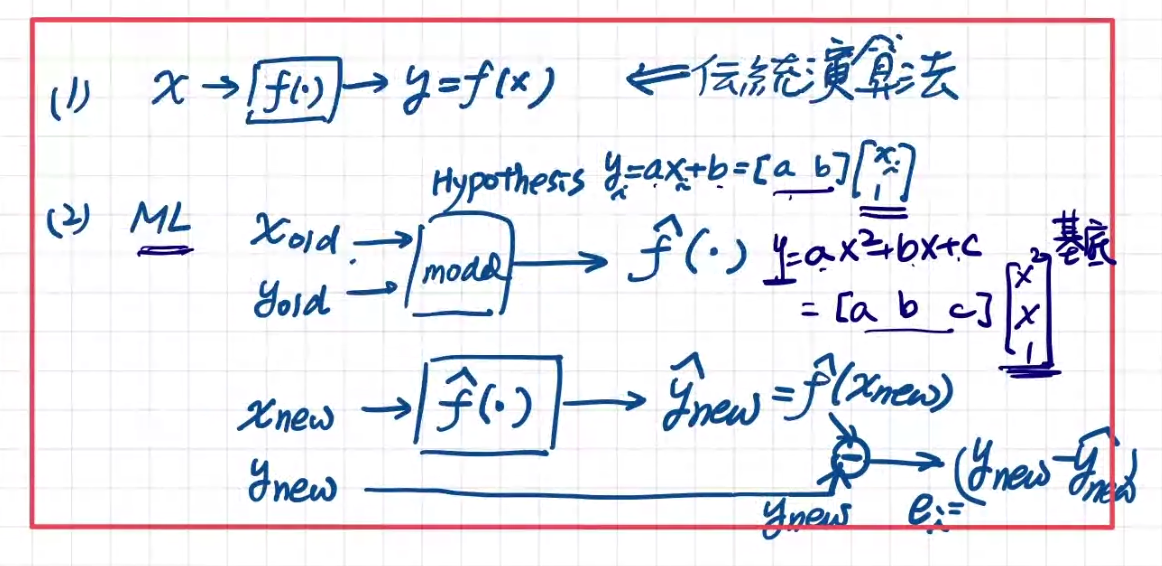 (1) x → f(·) → y=f(x) ⇐ 伝統演算法
Hypothesis yᵢ=axᵢ+b=[a b][xᵢ 1]
(2) ML
x_old → model → f̂(·)
y_old →
y=ax²+bx+c 基底
=[a b c][x² x 1]
x_new → f̂(·) → ŷ_new = f̂(x_new)
y_new
−
→ (y_new − ŷ_new)
y_new
eᵢ=